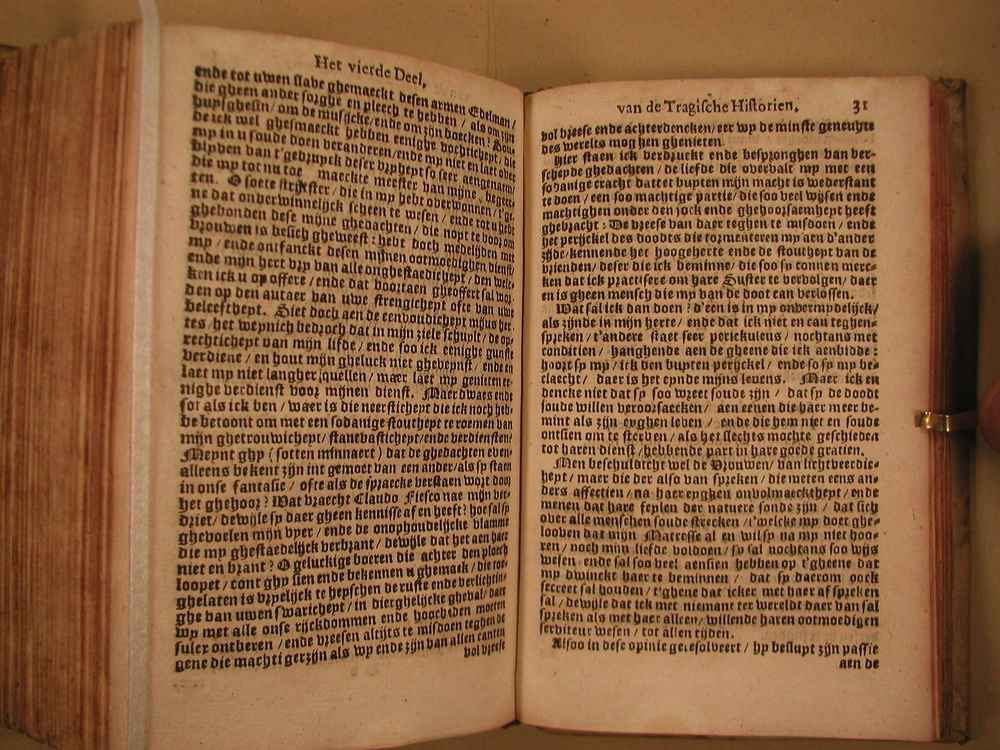 Het vierde Deel,
ende tot uwen slave ghemaeckt desen armen Edelman/
die gheen ander sorghe en pleech te hebben / als om zijn
huysghesin/ om de musijcke/ende om zijn boecken? Son-
de ick wel ghesmaeckt hebben eenighe vochticheyt/ die
mp in u soude doen veranderen/ende my niet en laet over
blyven van t'gebruyck deser vryheyt so seer aengenaem/
die my tot nu toe maeckte meester van mijne begeer-
ten. O soete strijtster / die in my hebt overwonnen / t'ge-
ne dat onverwinnelijck scheen te wesen / ende tot u hebt
ghebonden dese mijne ghedachten / die noyt te voor om
vrouwen is besich gheweest: hebt doch medelijden met
my / ende ontfanckt desen mijnen ootmoedighen dienst/
ende mijn hert vry van alle onghestaedicheyt / den welc-
ken ick u op offere / ende dat voortaen gheoffert sal wor-
den op den autaer van uwe strengicheyt ofte van uwe
beleeftheyt. Siet doch aen de eenvoudicheyt mijns her-
tes/ het weynich bedroch dat in mijn ziele schuylt / de op-
rechticheyt van mijn lifde / ende soo ick eenighe gunste
verdiene / en hout mijn gheluck niet gheveynst / ende en
laet my niet langher quellen / maer laet my genieten ee-
nighe verdienst voor mijnen dienst. Maer dwaes ende
sot als ick ben / waer is die neersticheyt die ick noch heb-
be betoont om met een sodanige stoutheyt te roemen van
mijn ghetrouwicheyt / stantvasticheyt/ende verdiensten?
Meynt ghy ( sotten minnaert ) dat de ghedachten even-
alleens bekent zijn int gemoet van een ander/als sy staen
in onse fantasie / ofte als de spraecke verstaen wort door
het ghehoor? Wat vraecht Claudo Fiesco nae mijn ver-
driet / dewijle sy daer gheen kennisse af en heeft? hoe sal sy
ghevoelen mijn vyer / ende de onophoudelijcke vlamme
die my ghestaedelijck verbrant / dewijle dat het aen haer
niet en brant? O geluckige boeren die achter den ploech
loopet / cont ghy sien ende bekennen u ghemack / die toe-
ghelaten is vrpelijck te heyschen de ruste ende verlichtin-
ghe van uwen swaricheyt / in dierghelijcke gheval / daer
wy met alle onse rijckdommen ende hoocheden moeten
sulcx ontberen / ende vreesen altijts te misdoen teghen de
gene die machtiger zijn als wy ende zijn van allen canten
vol vreese
van de Tragische Historien. 31
vol vreese ende achterdencken/ eer wy de minste geneuchte
des werelts moghen ghenieten.
Hier staen ick verdruckt ende bespronghen van ver-
scheyde ghedachten / de liefde die overvalt my met een
sodanige cracht dattet buyten mijn macht is wederstant
te doen / een soo machtige partie/ die soo veel wijsen ende
machtighen onder den jock ende ghehoorsaemheyt heeft
ghebracht: De vreese van daer teghen te misdoen / ende
het perijckel des doodts die tormenteren my aen d'ander
zijde/kennende het hoogeherte ende de stoutheyt van de
vrienden/ deser die ick beminne/ die soo sy connen merc-
ken dat ick practisere om hare Suster te vervolgen/ daer
en is gheen mensch die my van de doot can verlossen.
Wat sal ick dan doen? d'een is in my onvermydelijck/
als zijnde in mijn herte/ ende dat ick niet en can teghen-
spreken / t'andere staet seer perickuleus / nochtans met
conditien / hanghende aen de gheene die ick aenbidde:
hoort sy my / ick ben buyten perijckel / ende so sy my be-
claecht / daer is het eynde mijns levens. Maer ick en
dencke niet dat sy soo wreet soude zijn / dat sy de doodt
soude willen veroorsaecken / aen eenen die haer meer be-
mint als zijn eyghen leven / ende die hem niet en soude
ontsien om te sterven / als het slechts mochte geschieden
tot haren dienst/hebbende part in hare goede gratien.
Men beschuldicht wel de Vrouwen/ van lichtveerdic-
heyt / maer die der also van spreken / die meten eens an-
ders affectien / na haer eyghen onvolmaecktheyt / ende
menen dat hare feylen der natuere sonde zijn / dat sich
over alle menschen soude strecken / t'welcke my doet ghe-
looven dat mijn Matresse al en wilse na my niet hoo-
ren / noch mijn liefde voldoen / sy sal nochtans soo wijs
wesen / ende sal soo veel aensien hebben op t'gheene dat
my dwinckt haer te beminnen / dat sy daerom oock
secreet sal houden / t'ghene dat icker met haer af spreken
sal / dewijle dat ick met niemant ter werelt daer van sal
spreken als met haer alleen/ willende haren ootmoedigen
serviteur wesen / tot allen tijden.
Alsoo in dese opinie geresolveert / hy besluyt zijn passie
aen de